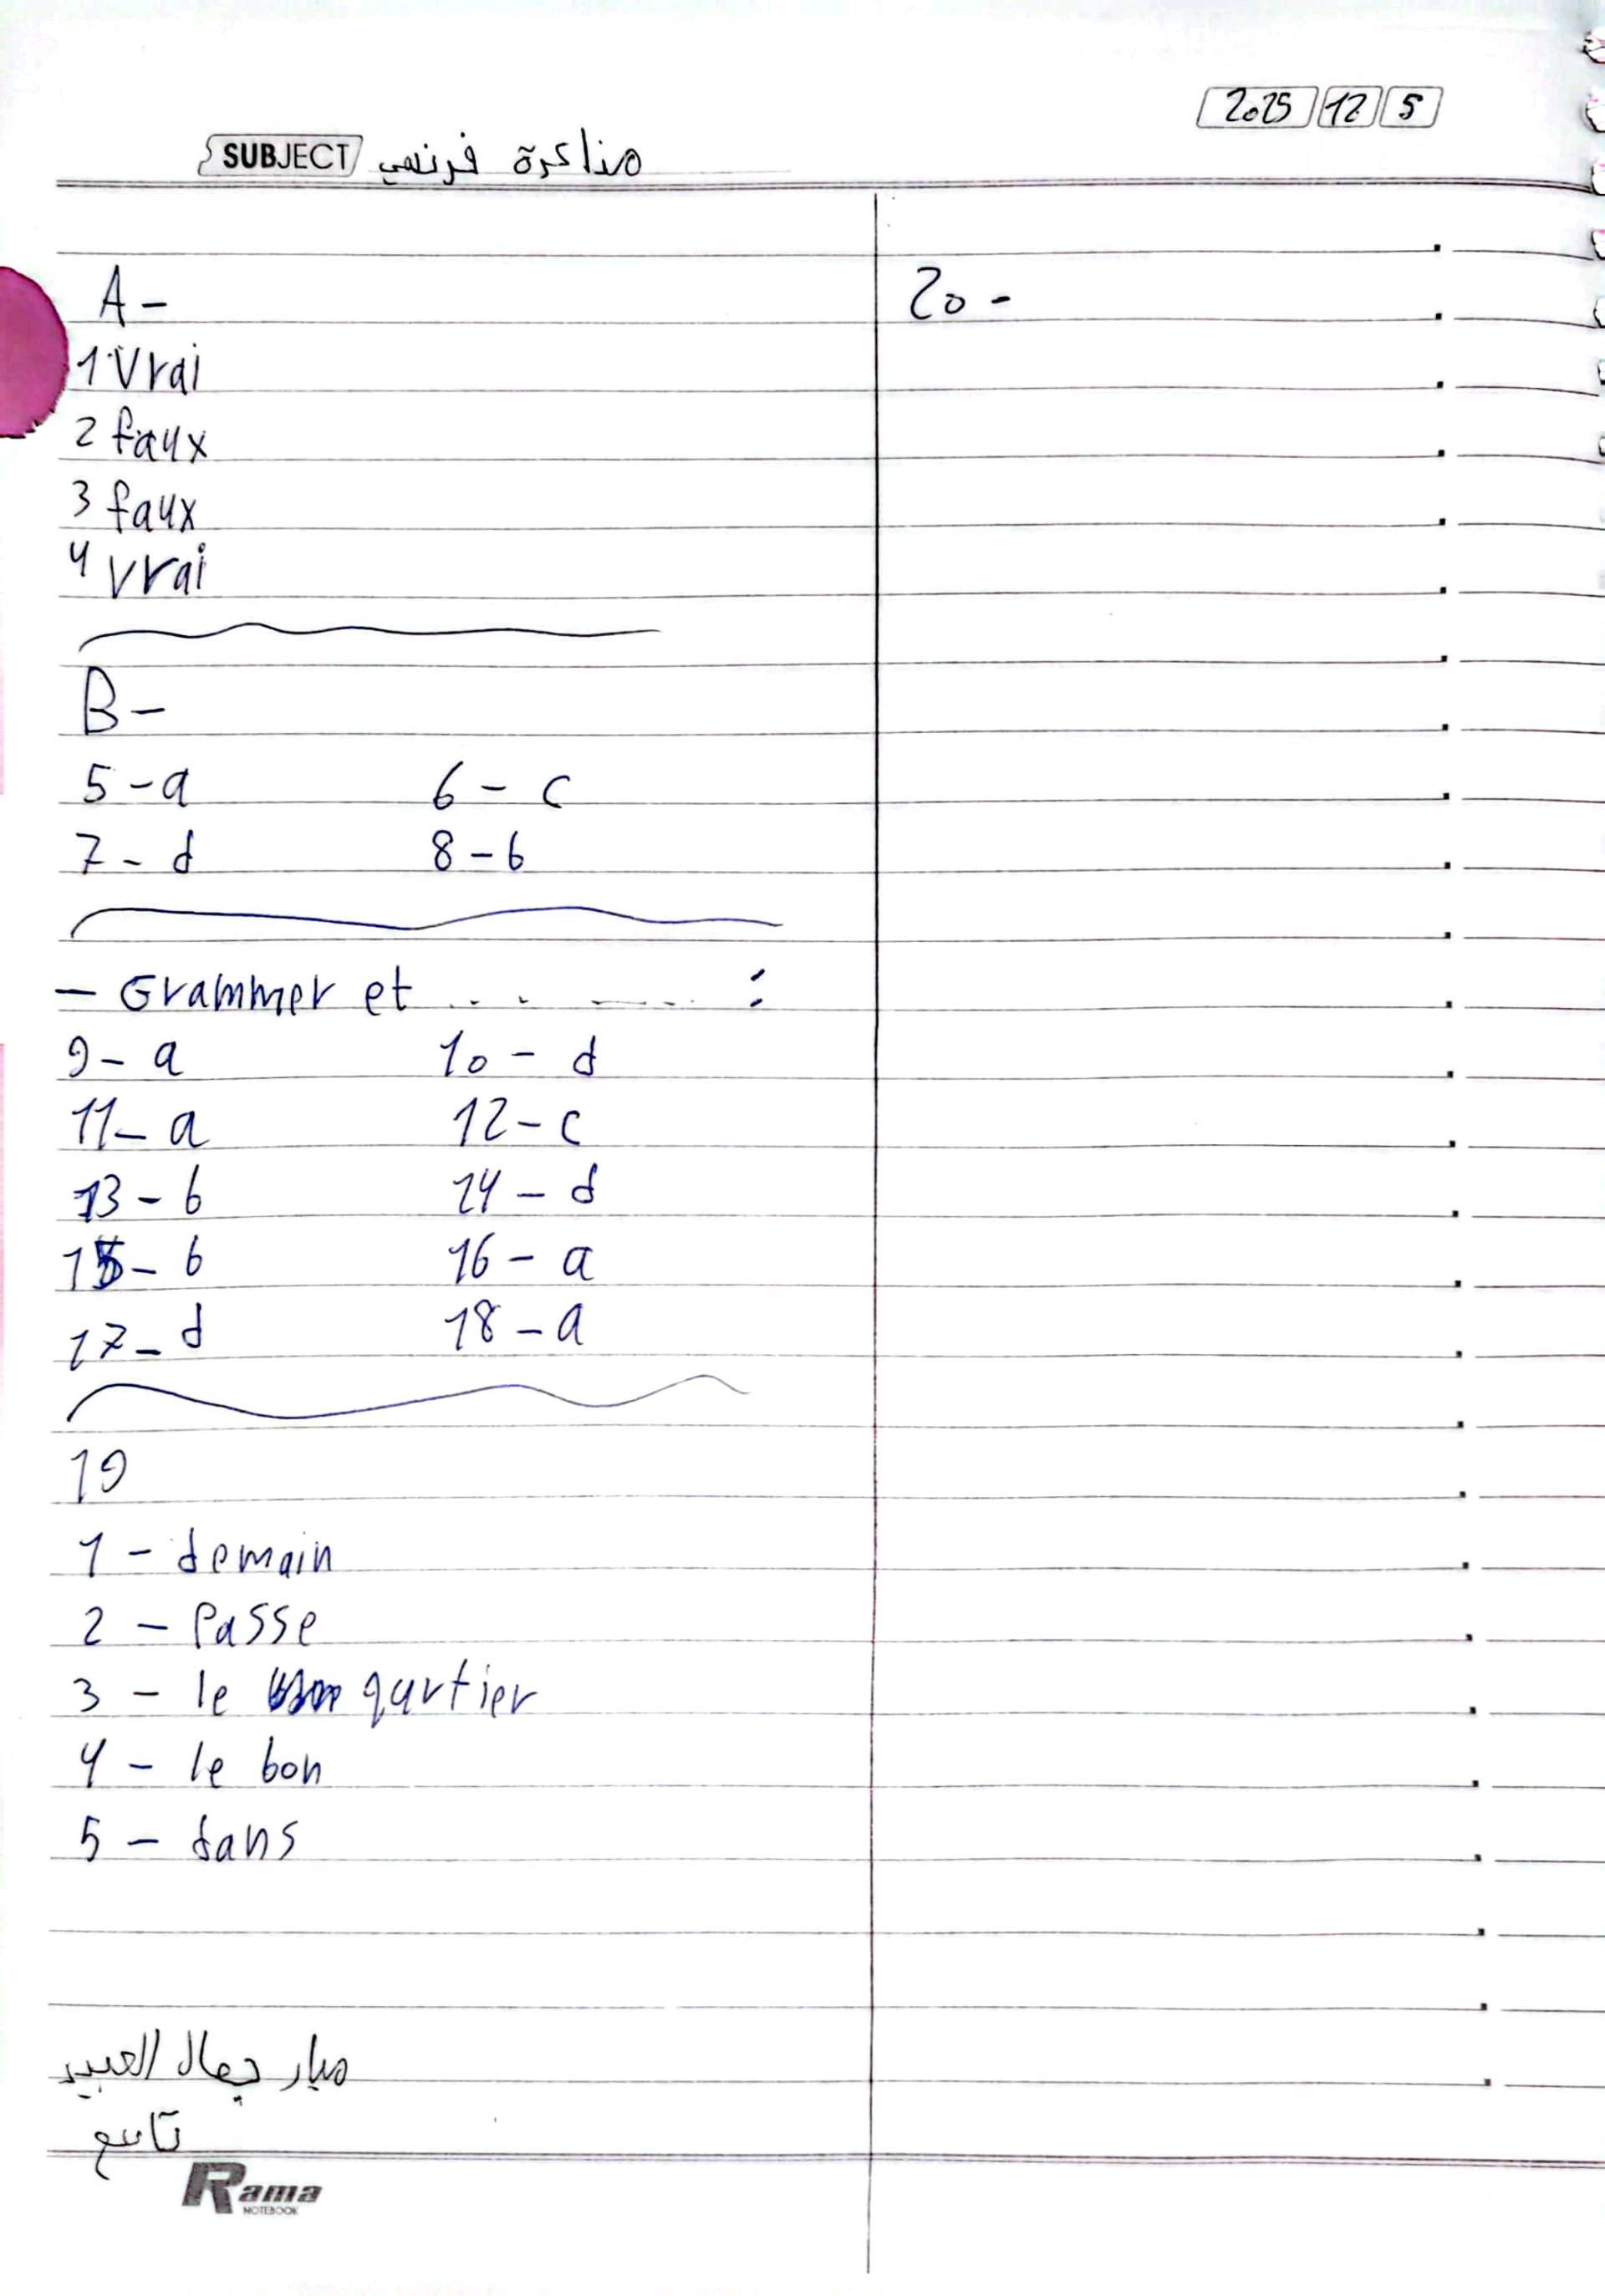 2025 12 5
SUBJECT مذاكرة فرنسي
A-
1 Vrai
2 faux
3 faux
4 Vrai
B-
5-a 6-c
7-d 8-b
- Grammer et .......... :
9-a 10-d
11-a 12-c
13-b 14-d
15-b 16-a
17-d 18-a
19
1 - demain
2 - Passe
3 - le qurtier
4 - le bon
5 - dans
ميار جمال العبيد
تاسع
Rama
NOTEBOOK
20 -